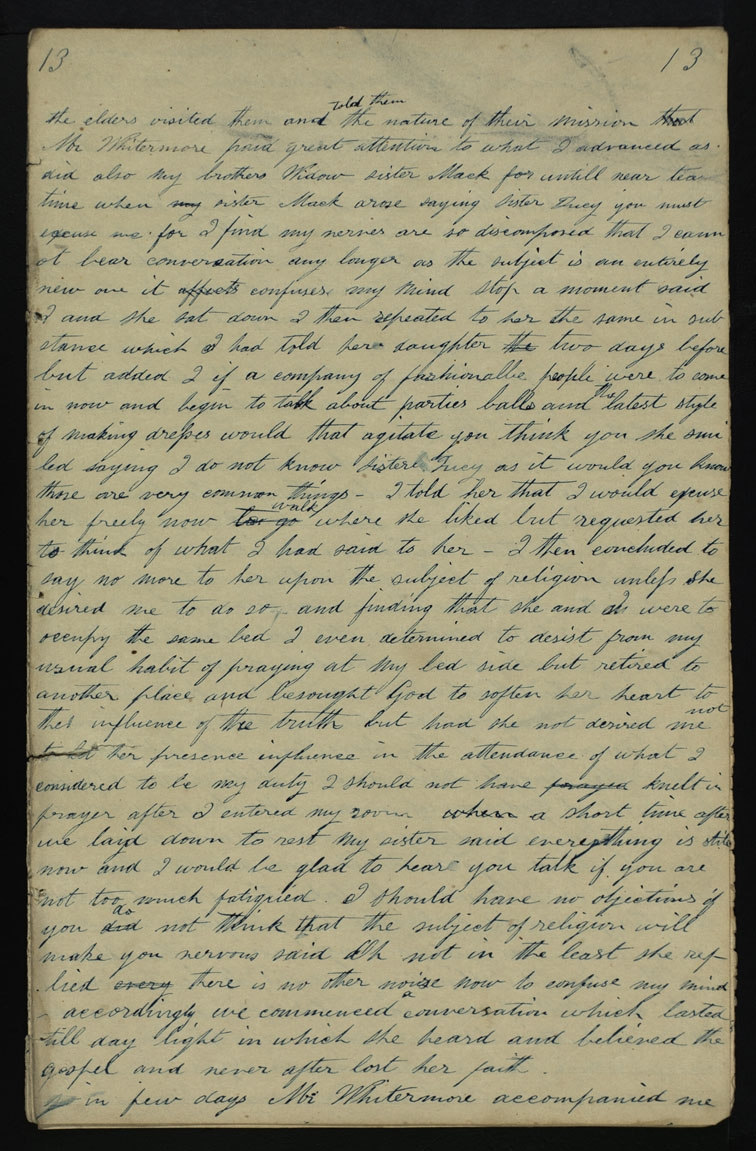 13 13
told them
the elders visited them and the nature of their mission that
Mr Whitermore paid great attention to what I advanced as
did also my brothers Widow sister Mack for untill near tea
time when my sister Mack arose saying sister Lucy you must
excuse me for I find my nerves are so discomposed that I cann
ot bear conversation any longer as the subject is an entirely
new one it affects confuses my mind stop a moment said
I and she sat down I then repeated to her the same in sub
stance which I had told her daughter the two days before
but added I if a company of fashionalbe people were to come
in now and begin to talk about parties balls and the latest style
of making dresses would that agitate you think you she smi
led saying I do not know sister Lucy as it would you know
those are very common things - I told her that I would excuse
walk
her freely now to go where she liked but requested her
to think of what I had said to her - I then concluded to
say no more to her upon the subject of religion unless she
desired me to do so, and finding that she and I were to
occupy the same bed I even determined to desist from my
usual habit of praying at my bed side but retired to
another place and besought God to soften her heart to
the influence of the truth but had she not desired me not
to let her presence influence in the attendance of what I
considered to be my duty I should not have prayed knelt in
prayer after I entered my room when a short time after
we laid down to rest my sister said everything is still
now and I would be glad to hear you talk if you are
not too much fatigued. I should have no objections if
do
you did not think that the subject of religion will
make you nervous said I Oh not in the least she rep-
lied every there is no other noise now to confuse my mind
- accordingly we commenced a conversation which lasted
till day light in which she heard and believed the
gospel and never after lost her faith.
in few days Mr Whitermore accompanied me